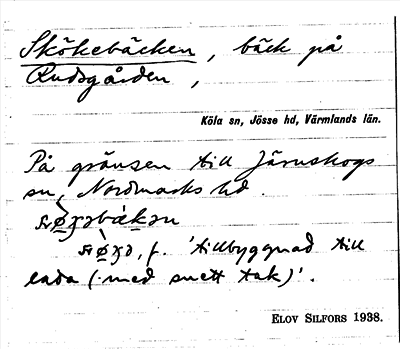 Skökebäcken, bäck på
Rudsgården,
Köla sn, Jösse hd, Värmlands län.
På gränsen till Järnskogs
sn, Nordmarks hd.
f. 'tillbyggnad till
lada (med snett tak)'.
ELOV SILFORS 1938.